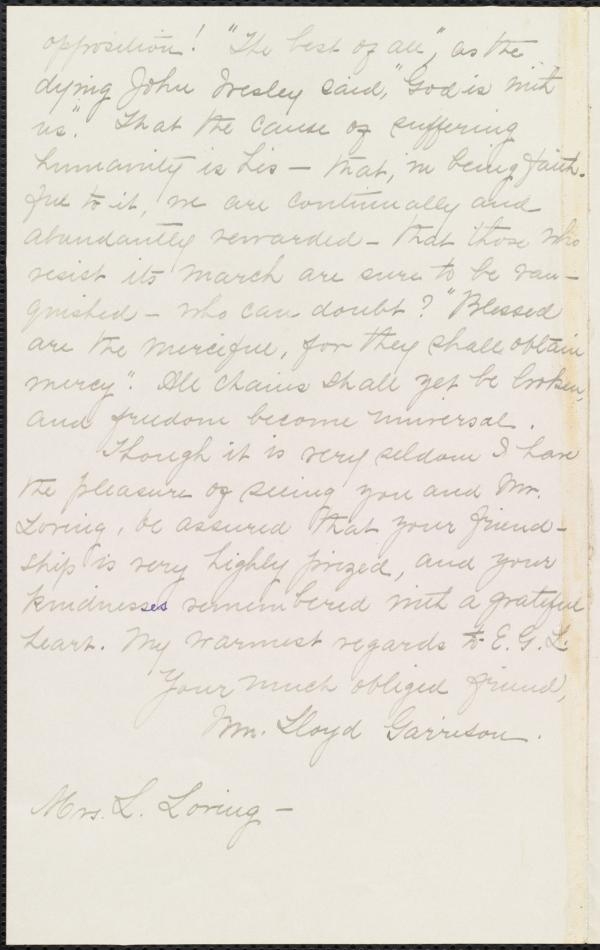 opposition! "The best of all," as the
dying John Wesley said, "God is with
us." That the cause of suffering
humanity is his – that, in being faith-
ful to it, we are continually and
abundantly rewarded – that those who
resist its march are sure to be van-
quished – who can doubt? "Blessed
are the merciful, for they shall obtain
mercy". All chains shall yet be broken,
and freedom become universal.
Though it is very seldom I have
the pleasure of seeing you and Mr.
Loring, be assured that your friend-
ship is very highly prized, and your
kindnesses remembered with a grateful
heart. My warmest regards to E. G. L.
Your much obliged friend,
Wm. Lloyd Garrison.
Mrs. L. Loring –